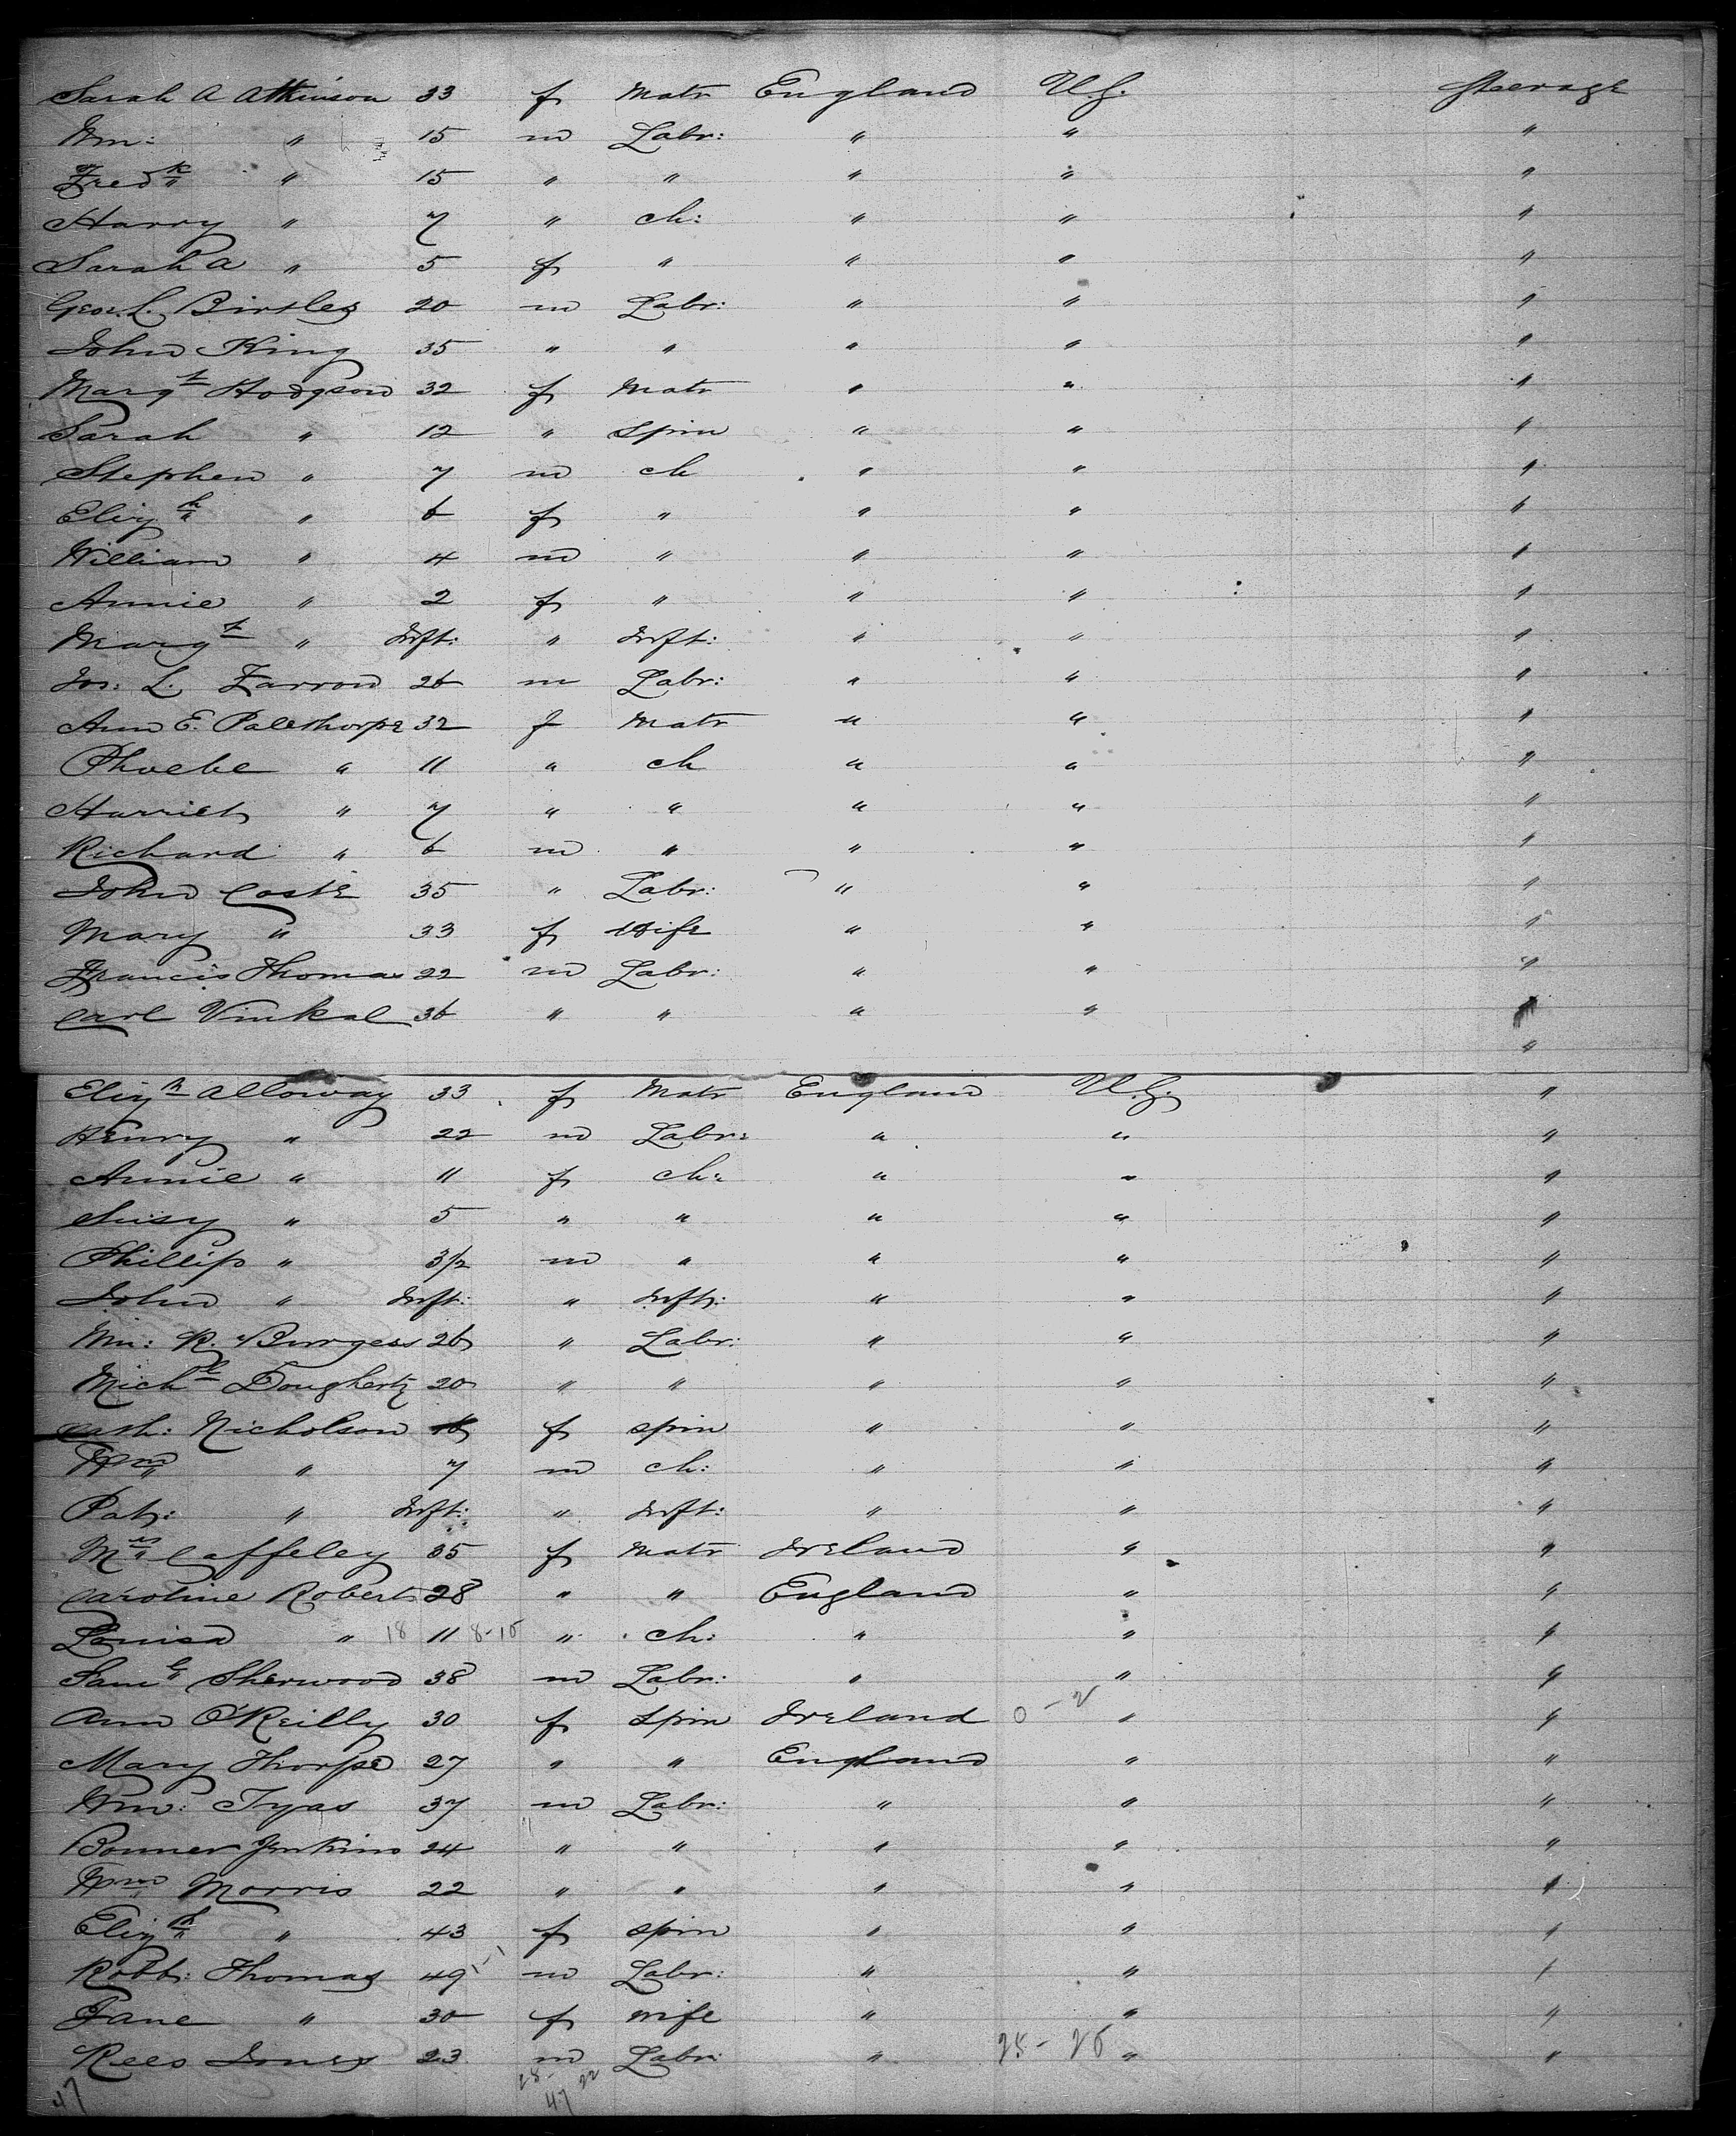 Sarah A Atkinson 33 f Matr England U.S. Steerage
Wm: " 15 m Labr: " " "
Fredk " 15 " " " " "
Harry " 7 " ch: " " "
Sarah A " 5 f " " " "
Geo. L. Birtles 20 m Labr: " " "
John King 35 " " " " "
Margt Hodgson 32 f Matr " " "
Sarah " 12 " Spin " " "
Stephen " 7 m ch " " "
Elizth " 6 f " " " "
William " 4 m " " " "
Annie " 2 f " " " "
Margt " Inft: " Inft: " " "
Jos: L. Farrow 26 m Labr: " " "
Ann E. Palethorpe 32 f Matr " " "
Phoebe " 11 " ch " " "
Harriet " 7 " " " " "
Richard " 6 m " " " "
John Coste 35 " Labr: " " "
Mary " 33 f Wife " " "
Francis Thomas 22 m Labr: " " "
Carl Vinkal 36 " " " " "
"
Elizh Alloway 33 f Matr England U.S. "
Henry " 22 m Labr: " " "
Annie " 11 f ch: " " "
Susy " 5 " " " " "
Phillip " 3½ m " " " "
John " Inft: " Inft: " " "
Wm: R. Burgess 26 " Labr: " " "
Michl Dougherty 20 " " " " "
Cath: Nicholson 16 f spin " " "
Wm " 7 m ch: " " "
Pat: " Inft: " Inft: " " "
Mrs Caffeley 35 f Matr Ireland " "
Caroline Roberts 28 " " England " "
Louisa " 18 11 8-10 " ch: " " "
Saml Sherwood 38 m Labr: " " "
Ann O'Reilly 30 f Spin Ireland 0-2 " "
Mary Thorpe 27 " " England " "
Wm: Tyas 37 m Labr: " " "
Bonner Jenkins 24 " " " " "
Wm Morris 22 " " " " "
Elizth " 43 f spin " " "
Robt: Thomas 49 1-1 m Labr: " " "
Jane " 30 f wife " " "
Rees Jones 23 m Labr: " 25- " "
47 25- 22
47